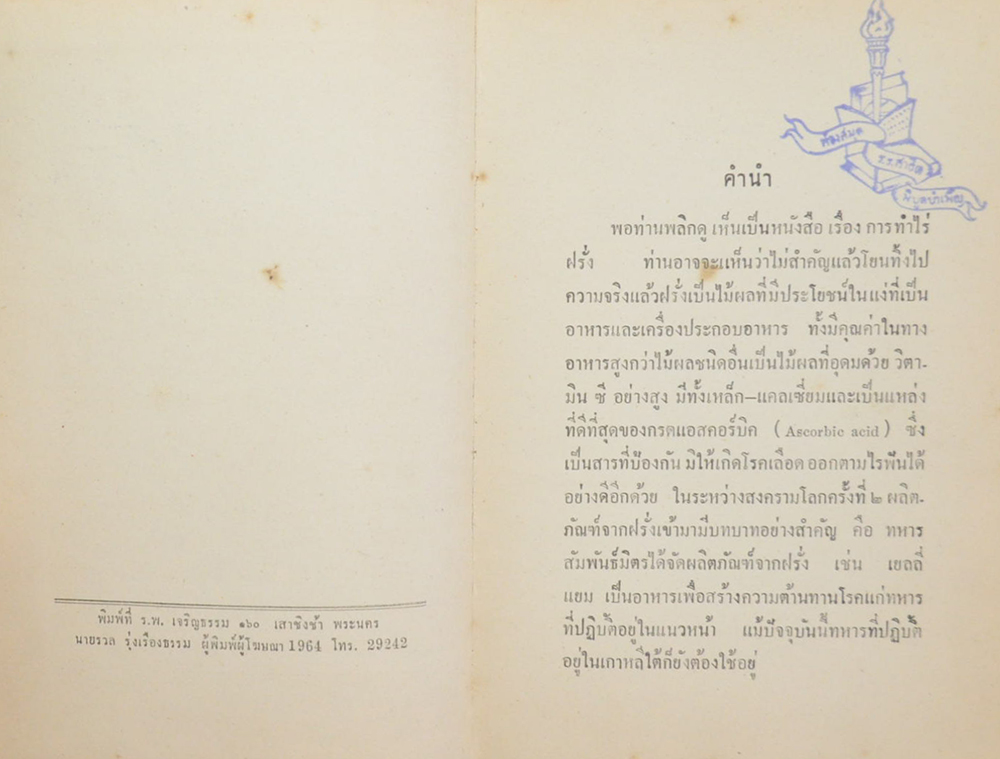 พิมพ์ที่ ร.พ. เจริญธรรม ๑๖๐ เสาชิงช้า พระนคร
นายรวล รุ่งเรืองธรรม ผู้พิมพ์ผู้โฆษณา 1964 โทร. 29242
ห้องสมุด
คำนำ
พอท่านพลิกดู เห็นเป็นหนังสือ เรื่อง การทำไร่
ฝรั่ง ท่านอาจจะเห็นว่าไม่สำคัญแล้วโยนทิ้งไป
ความจริงแล้วฝรั่งเป็นไม้ผลที่มีประโยชน์ในแง่ที่เป็น
อาหารและเครื่องประกอบอาหาร ทั้งมีคุณค่าในทาง
อาหารสูงกว่าไม้ผลชนิดอื่นเป็นไม้ผลที่อุดมด้วย วิตา-
มิน ซี อย่างสูง มีทั้งเหล็ก–แคลเซี่ยมและเป็นแหล่ง
ที่ดีที่สุดของกรดแอสคอร์บิค ( Ascorbic acid ) ซึ่ง
เป็นสารที่ป้องกัน มิให้เกิดโรคเลือด ออกตามไรฟันได้
อย่างดีอีกด้วย ในระหว่างสงครามโลกครั้งที่ ๒ ผลิต-
ภัณฑ์จากฝรั่งเข้ามามีบทบาทอย่างสำคัญ คือ ทหาร
สัมพันธ์มิตรได้จัดผลิตภัณฑ์จากฝรั่ง เช่น เยลลี่
แยม เป็นอาหารเพื่อสร้างความต้านทานโรคแก่ทหาร
ที่ปฏิบัติอยู่ในแนวหน้า แม้ปัจจุบันนี้ทหารที่ปฏิบัติ
อยู่ในเกาหลีใต้ก็ยังต้องใช้อยู่